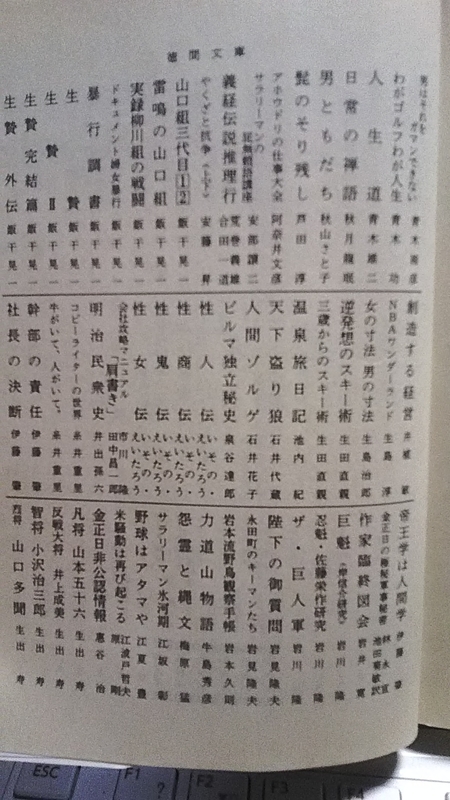 徳間文庫
男はそれをガマンできない 青木雨彦
わがゴルフわが人生 青木功
人生道 青木雄二
日常の禅語 秋月龍珉
男ともだち 秋山さと子
髭のそり残し 戸田淳
アホウドリの仕事大全 阿奈井文彦
サラリーマンの屁無頼語講座 安部譲二
義経伝説推理行 荒巻義雄 合田一道
やくざと抗争〈上・下〉 安藤昇
山口組三代目[1][2] 飯干晃一
雷鳴の山口組 飯干晃一
実録柳川組の戦闘 飯干晃一
ドキュメント婦女暴行 飯干晃一
暴行調書 飯干晃一
生贄 飯干晃一
生贄Ⅱ 飯干晃一
生贄完結篇 飯干晃一
生贄外伝 飯干晃一
創造する経営 井植敏
NBAワンダーランド 生島淳
女の寸法男の寸法 生島治郎
逆発想のスキー術 生田直親
三歳からのスキー術 生田直親
温泉旅日記 池内紀
天下盗り狼 石井代蔵
人間ゾルゲ 石井花子
ビルマ独立秘史 泉谷達郎
性人伝 いその・えいたろう
性商伝 いその・えいたろう
性鬼伝 いその・えいたろう
性女伝 いその・えいたろう
会社攻略マニュアル「肩書き」 市川隆 田中昌一郎
明治民衆史 井出孫六
コピーライターの世界 糸井重里
牛がいて、人がいて。 糸井重里
幹部の責任 伊藤肇
社長の決断 伊藤肇
帝王学は人間学 伊藤肇
金正日の極秘軍事秘書 林永宣 池田菊敏訳
作家臨終図会 岩井寛
巨魁〈岸信介研究〉 岩川隆
忍魁・佐藤栄作研究 岩川隆
ザ・巨人軍 岩川隆
陛下の御質問 岩見隆夫
永田町のキーマンたち 岩見隆夫
岩本流野鳥観察手帳 岩本久則
力道山物語 牛島秀彦
怨霊と縄文 梅原猛
サラリーマン氷河期 江坂彰
野球はアタマや 江夏豊
米騒動は再び起こる 江波戸哲夫 原剛
金正日非公認情報 恵谷治
凡将 山本五十六 生出寿
反戦大将 井上成美 生出寿
智将 小沢治三郎 生出寿
烈将 山口多聞 生出寿
ESC
F1
?
F2
F3
F4